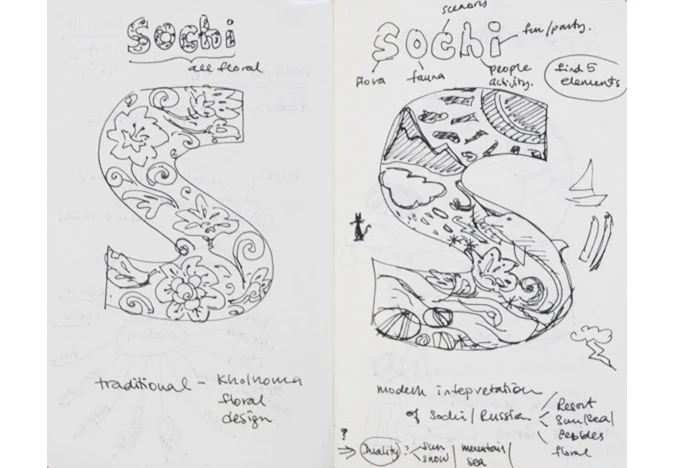 Sochi
all floral
S
traditional - Khohnoma
floral
design
scenery
Sochi
fun/party.
flora
fauna
people
activity.
find 5
elements
S
modern intepretation
of Sochi / Russian
Resort
Sun/sea/
floral
?
Duality?
sun
snow
mountain/
sea